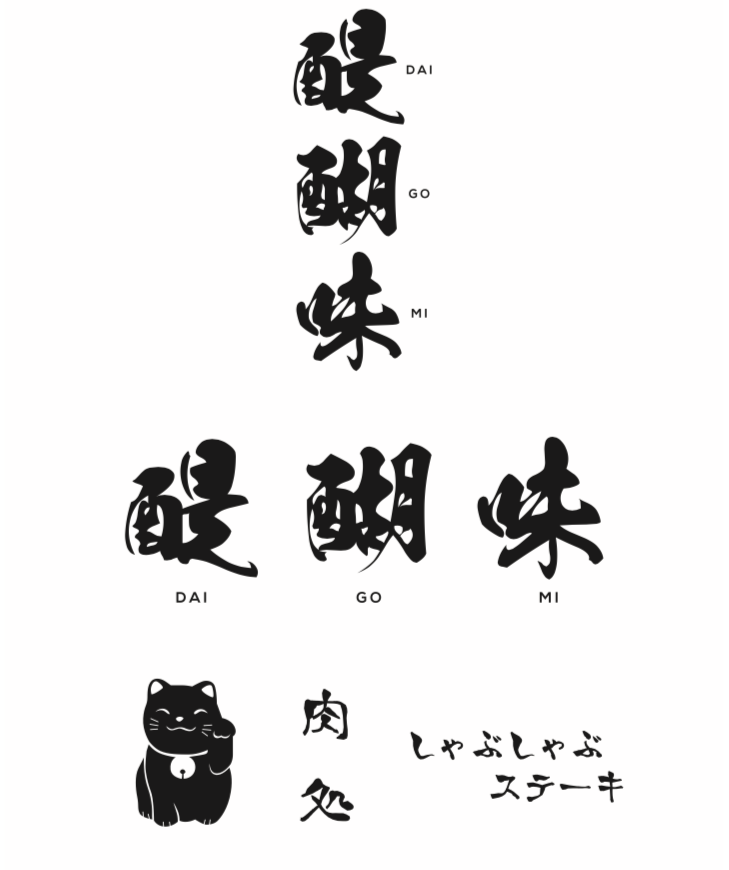 醍 DAI
醐 GO
味 MI
醍 醐 味
DAI GO MI
肉処
しゃぶしゃぶ
ステーキ